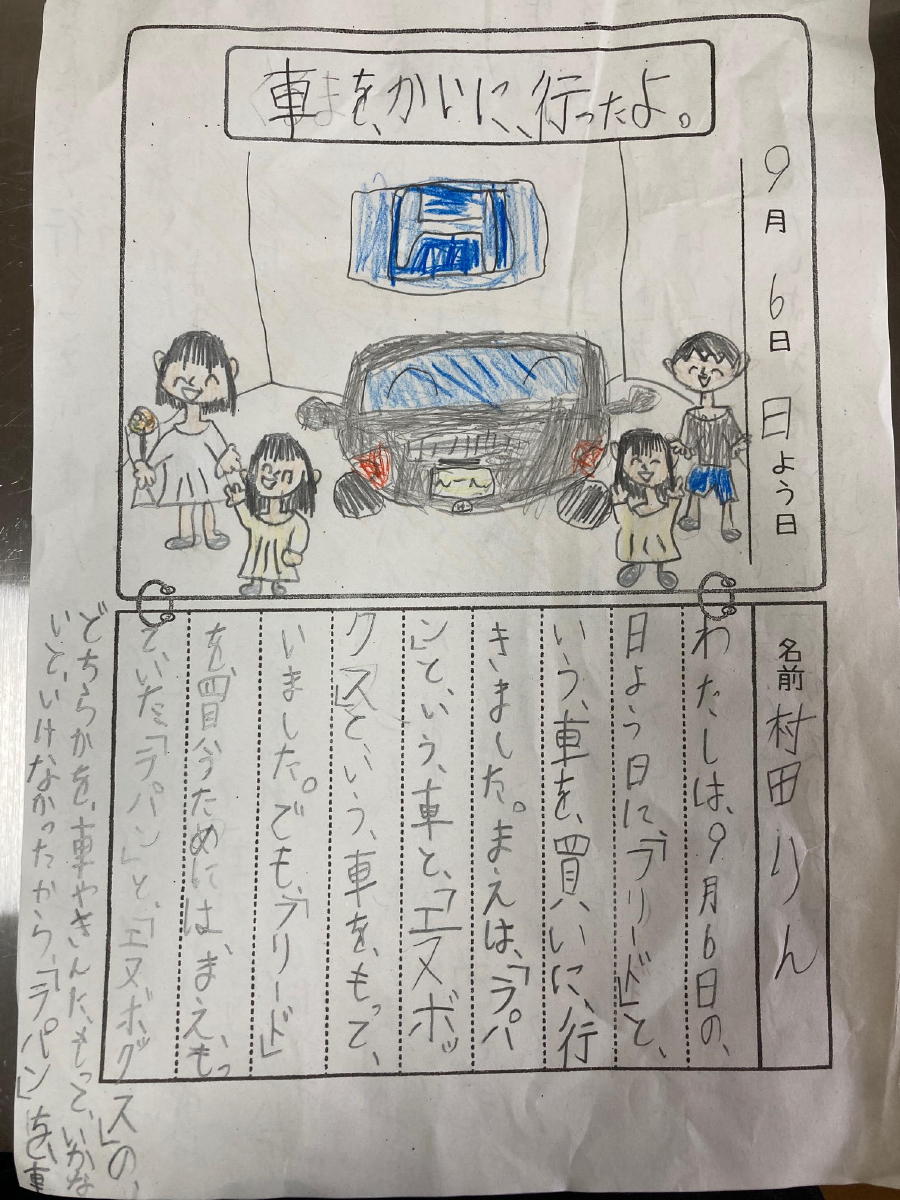 車を、かいに、行ったよ。
9月6日日よう日
名前 村田りん
わたしは、9月6日の、
日よう日に、「フリード」と、
いう、車を、買いに、行
きました。まえは、「ラパ
ン」と、いう、車と、「エヌボッ
クス」と、いう、車を、もって、
いました。でも、「フリード」
を、買うためには、まえ、もっ
て、いた、「ラパン」と、「エヌボックス」の、
どちらかを、車やさんに、もって、いかな
いと、いけなかったから、「ラパン」を、車